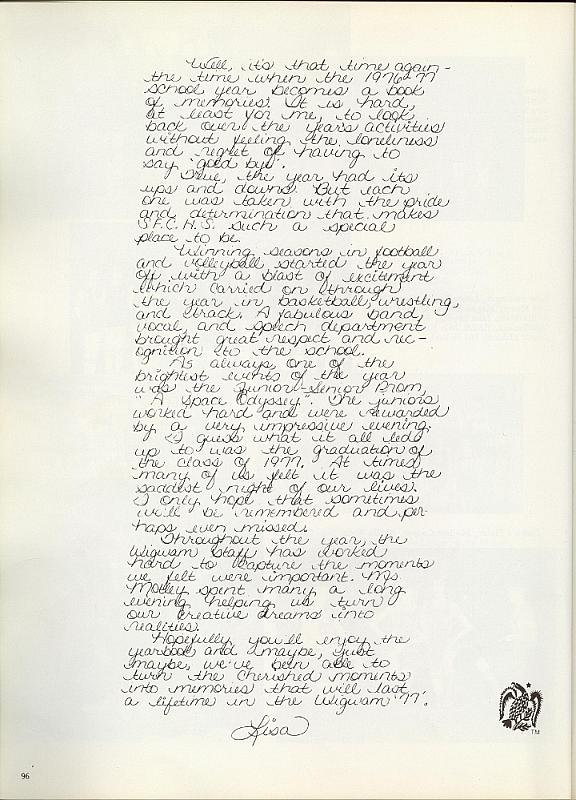 Well, it's that time again -
the time when the 1976-77
school year becomes a book
of memories. It is hard,
at least for me, to look
back over the years activities
without feeling the loneliness
and regret of having to
say "good bye".
True, the year had its
ups and downs. But each
one was taken with the pride
and determination that makes
S.F.C.H.S. such a special
place to be.
Winning seasons in football
and volleyball started the year
off with a blast of excitement
which carried on through
the year in basketball, wrestling,
and track. A fabulous band,
vocal, and speech department
brought great respect and rec-
ognition to the school.
As always, one of the
brightest events of the year
was the Junior-Senior Prom,
"A Space Odyssey". The juniors
worked hard and were rewarded
by a very impressive evening.
I guess what it all led
up to was the graduation of
the class of 1977. At times
many of us felt it was the
saddest night of our lives.
I only hope that sometimes
we'll be remembered and per-
haps even missed.
Throughout the year, the
Wigwam Staff has worked
hard to capture the moments
we felt were important. Ms.
Motley spent many a long
evening helping us turn
our creative dreams into
realities.
Hopefully you'll enjoy the
yearbook and maybe, just
maybe, we've been able to
turn the cherished moments
into memories that will last
a lifetime in the Wigwam '77'.
Lisa
TM
96